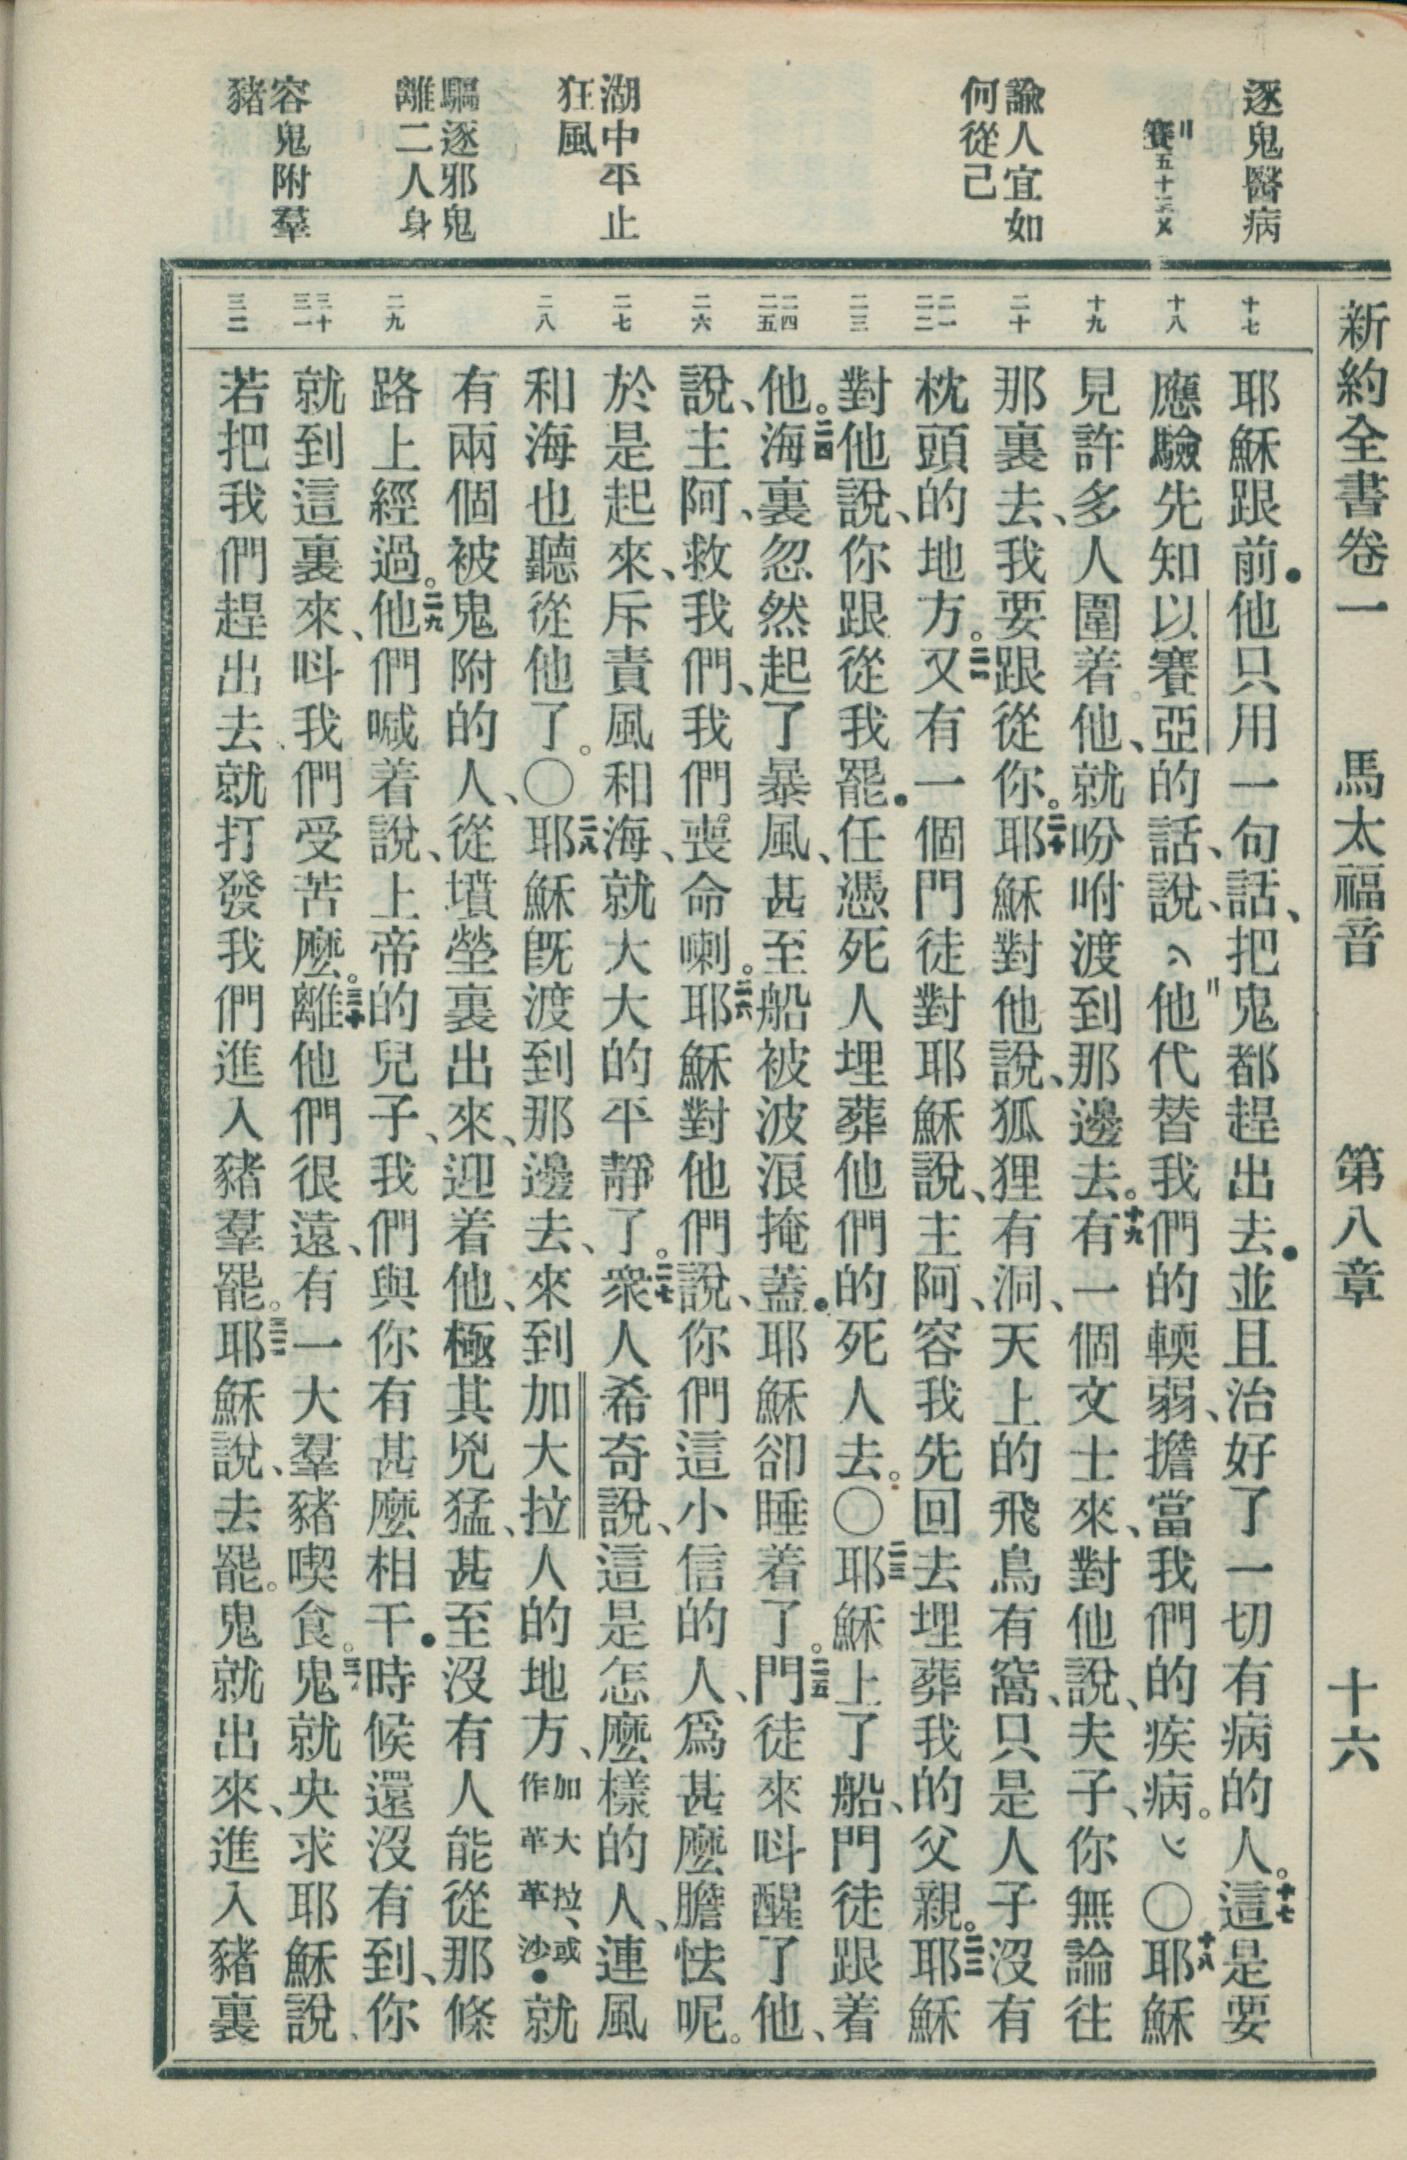 新約全書卷一　馬太福音　第八章　十六
逐鬼醫病
賽五十三〤
諭人宜如
何從己
湖中平止
狂風
驅逐邪鬼
離二人身
容鬼附羣
豬
十七
十八
十九
二十
二一
二二
二三
二四
二五
二六
二七
二八
二九
三十
三一
三二
耶穌跟前．他只用一句話、把鬼都趕出去．並且治好了一切有病的人。十七這是要
應驗先知以賽亞的話、說、他代替我們的輭弱、擔當我們的疾病。〇十八耶穌
見許多人圍着他、就吩咐渡到那邊去。十九有一個文士來、對他說、夫子、你無論往
那裏去、我要跟從你。二十耶穌對他說、狐狸有洞、天上的飛鳥有窩、只是人子沒有
枕頭的地方。二一又有一個門徒對耶穌說、主阿、容我先回去埋葬我的父親。二二耶穌
對他說、你跟從我罷．任憑死人埋葬他們的死人去。〇二三耶穌上了船、門徒跟着
他。二四海裏忽然起了暴風、甚至船被波浪掩蓋．耶穌卻睡着了。二五門徒來呌醒了他、
說、主阿、救我們、我們喪命喇。二六耶穌對他們說、你們這小信的人、爲甚麼膽怯呢。
於是起來、斥責風和海、就大大的平靜了。二七衆人希奇說、這是怎麼樣的人、連風
和海也聽從他了。〇二八耶穌旣渡到那邊去、來到加大拉人的地方、加大拉、或作革革沙．就
有兩個被鬼附的人、從墳塋裏出來、迎着他、極其兇猛、甚至沒有人能從那條
路上經過。二九他們喊着說、上帝的兒子、我們與你有甚麼相干．時候還沒有到、你
就到這裏來、呌我們受苦麼。三十離他們很遠、有一大羣豬喫食。三一鬼就央求耶穌說、
若把我們趕出去、就打發我們進入豬羣罷。三二耶穌說、去罷。鬼就出來、進入豬裏